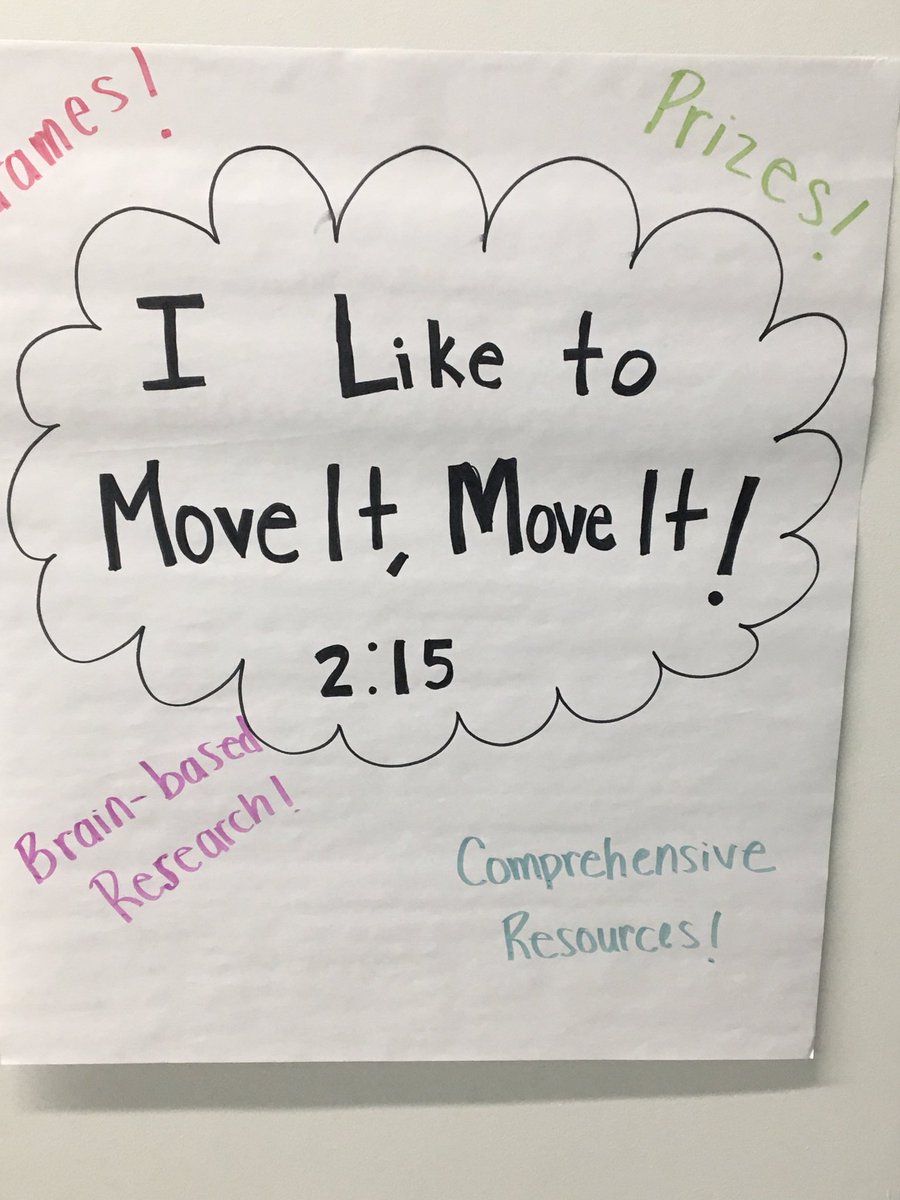 Prizes!
I Like to
Move It, Move It!
2:15
Brain-based
Research!
Comprehensive
Resources!